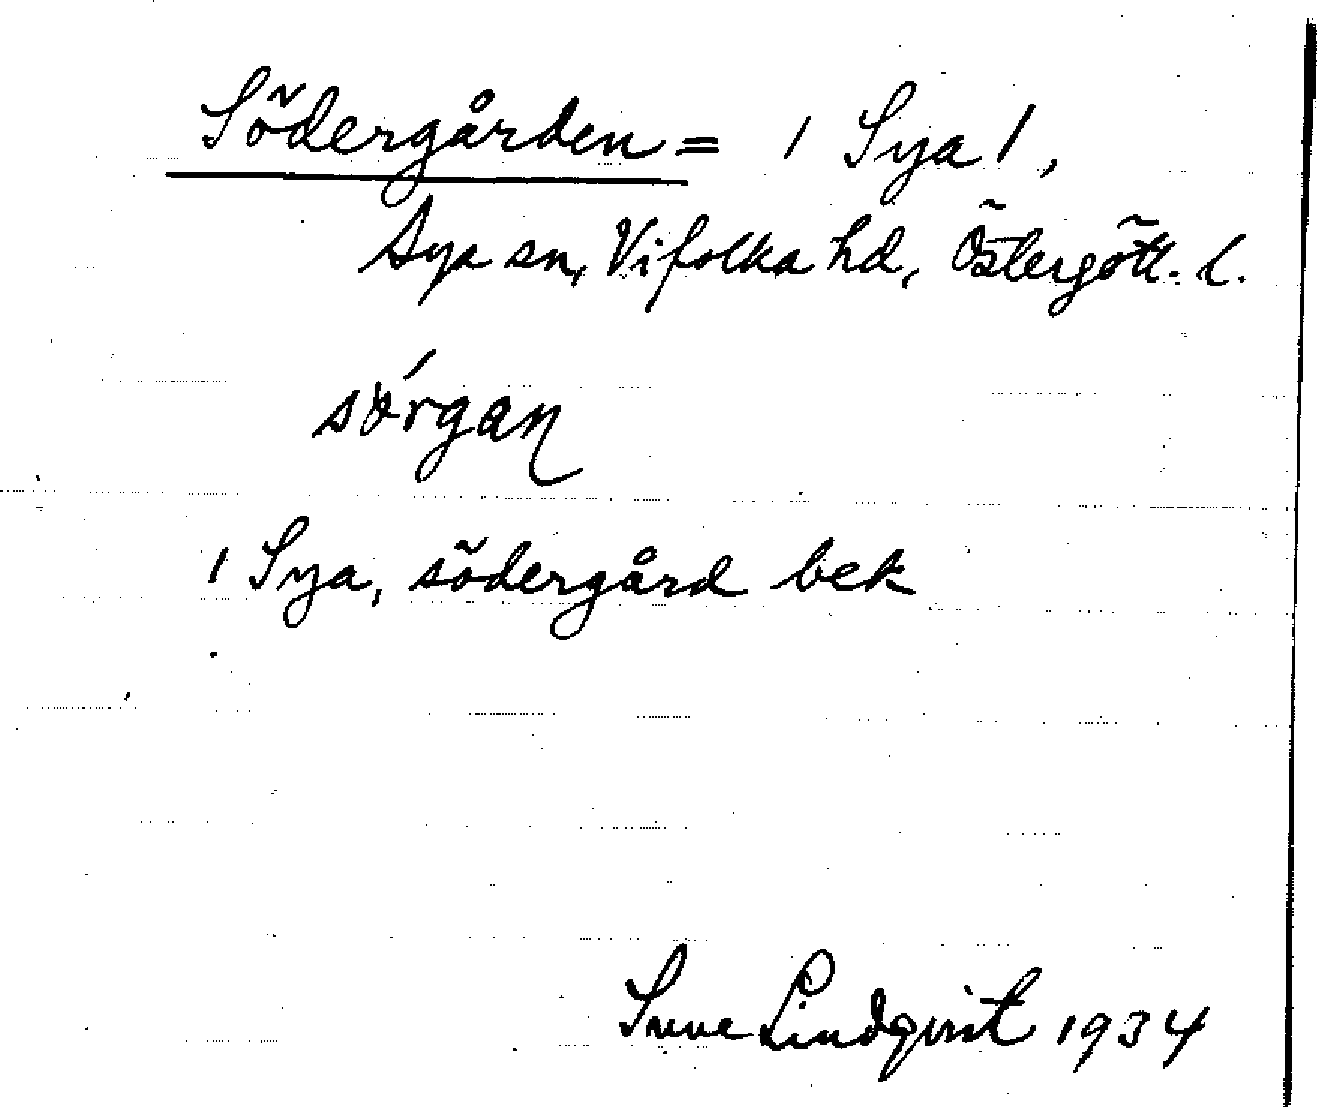 Södergården = 1 Sya 1,
Sya sn, Vifolka hd, Östergötl. l.
1 Sya, södergård bek
Sune Lindqvist 1934